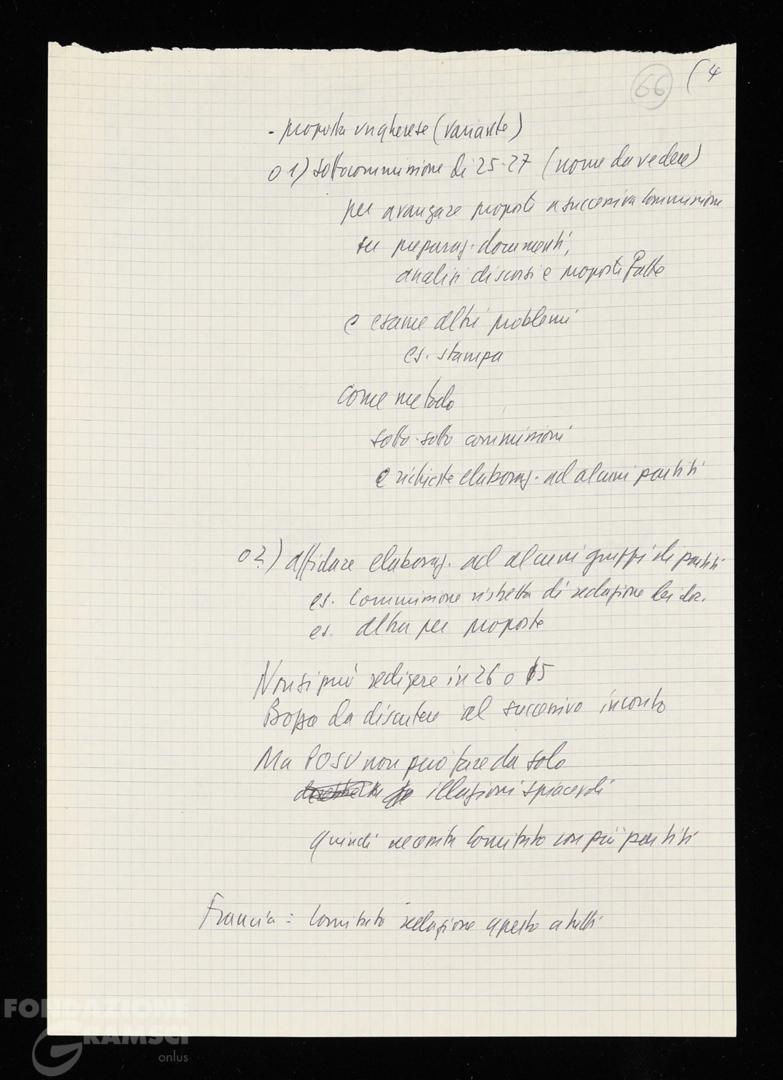 66 (4
- proposta ungherese (variante)
o 1) sottocommissione di 25-27 (nome da vedere)
per avanzare proposte a successiva commissione
su preparaz. documenti,
analisi discorsi e proposte fatte
e esame altri problemi
es. stampa
Come metodo
sotto-sotto commissioni
e richieste elaboraz. ad alcuni partiti
o 2) affidare elaboraz. ad alcuni gruppi di partiti
es. Commissione ristretta di redazione doc.
es. altra per proposte
Non si può redigere in 26 o 15
Bozza da discutere al successivo incontro
Ma POSU non può fare da solo
illazioni spiacevoli
quindi necessita Comitato con più partiti
Francia = Comitato redazione aperto a tutti
FONDAZIONE
GRAMSCI
onlus